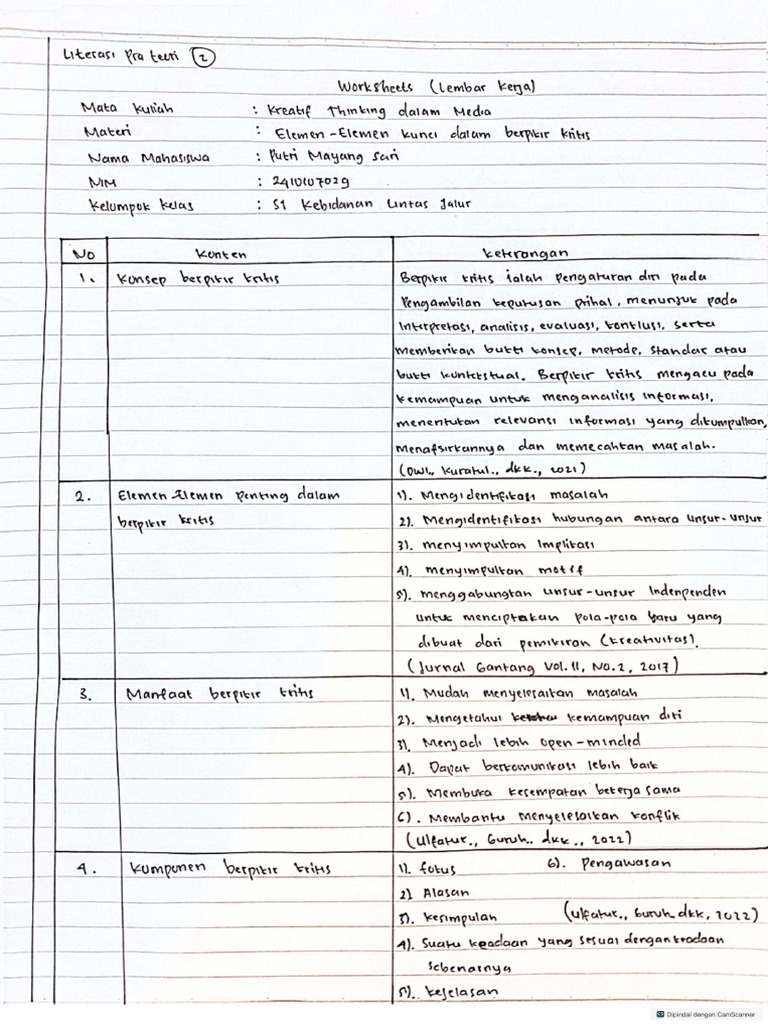 Literasi Pra teori 2
Worksheets (Lembar Kerja)
Mata Kuliah : Kreatif Thinking dalam Media
Materi : Elemen-Elemen kunci dalam berpikir kritis
Nama Mahasiswa : Putri Mayang Sari
NIM : 2410107029
Kelompok Kelas : S1 Kebidanan Lintas Jalur
No Konten Keterangan
1. Konsep berpikir kritis
Berpikir kritis ialah pengaturan diri pada
Pengambilan keputusan prihal, menunjuk pada
Interpretasi, analisis, evaluasi, konklusi, serta
memberikan bukti konsep, metode, standar atau
bukti kontekstual. Berpikir kritis mengacu pada
kemampuan untuk menganalisis informasi,
menentukan relevansi informasi yang dikumpulkan,
menafsirkannya dan memecahkan masalah.
(Dwi., Kuratul., dkk., 2021)
2. Elemen-Elemen penting dalam
berpikir kritis
1). Mengidentifikasi masalah
2). Mengidentifikasi hubungan antara unsur-unsur
3). menyimpulkan Implikasi
4). menyimpulkan motif
5). menggabungkan unsur-unsur Indenpenden
untuk menciptakan pola-pola baru yang
dibuat dari pemikiran (kreativitas).
(Jurnal Gantang Vol. II, No. 2, 2017)
3. Manfaat berpikir kritis
1). Mudah menyelesaikan masalah
2). Mengetahui kemampuan diri
3). Menjadi lebih open-minded
4). Dapat berkomunikasi lebih baik
5). Membuka kesempatan bekerja sama
6). Membantu menyelesaikan konflik
(Ulfatur., Guruh., dkk., 2022)
4. Komponen berpikir kritis
1). fokus 6). Pengawasan
2) Alasan
3). kesimpulan (Ulfatur., Guruh. dkk, 2022)
4). Suatu keadaan yang sesuai dengan keadaan
sebenarnya
5). kejelasan
Dipindai dengan CamScanner